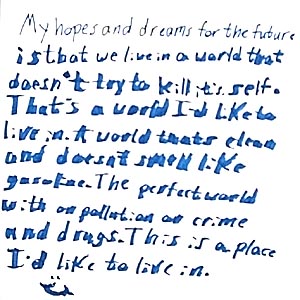 My hopes and dreams for the future
is that we live in a world that
doesn't try to kill it's self.
That's a world I'd like to
live in. A world thats clean
and doesn't smell like
gasoline. The perfect world
with no pollution or crime
and drugs. This is a place
I'd like to live in.